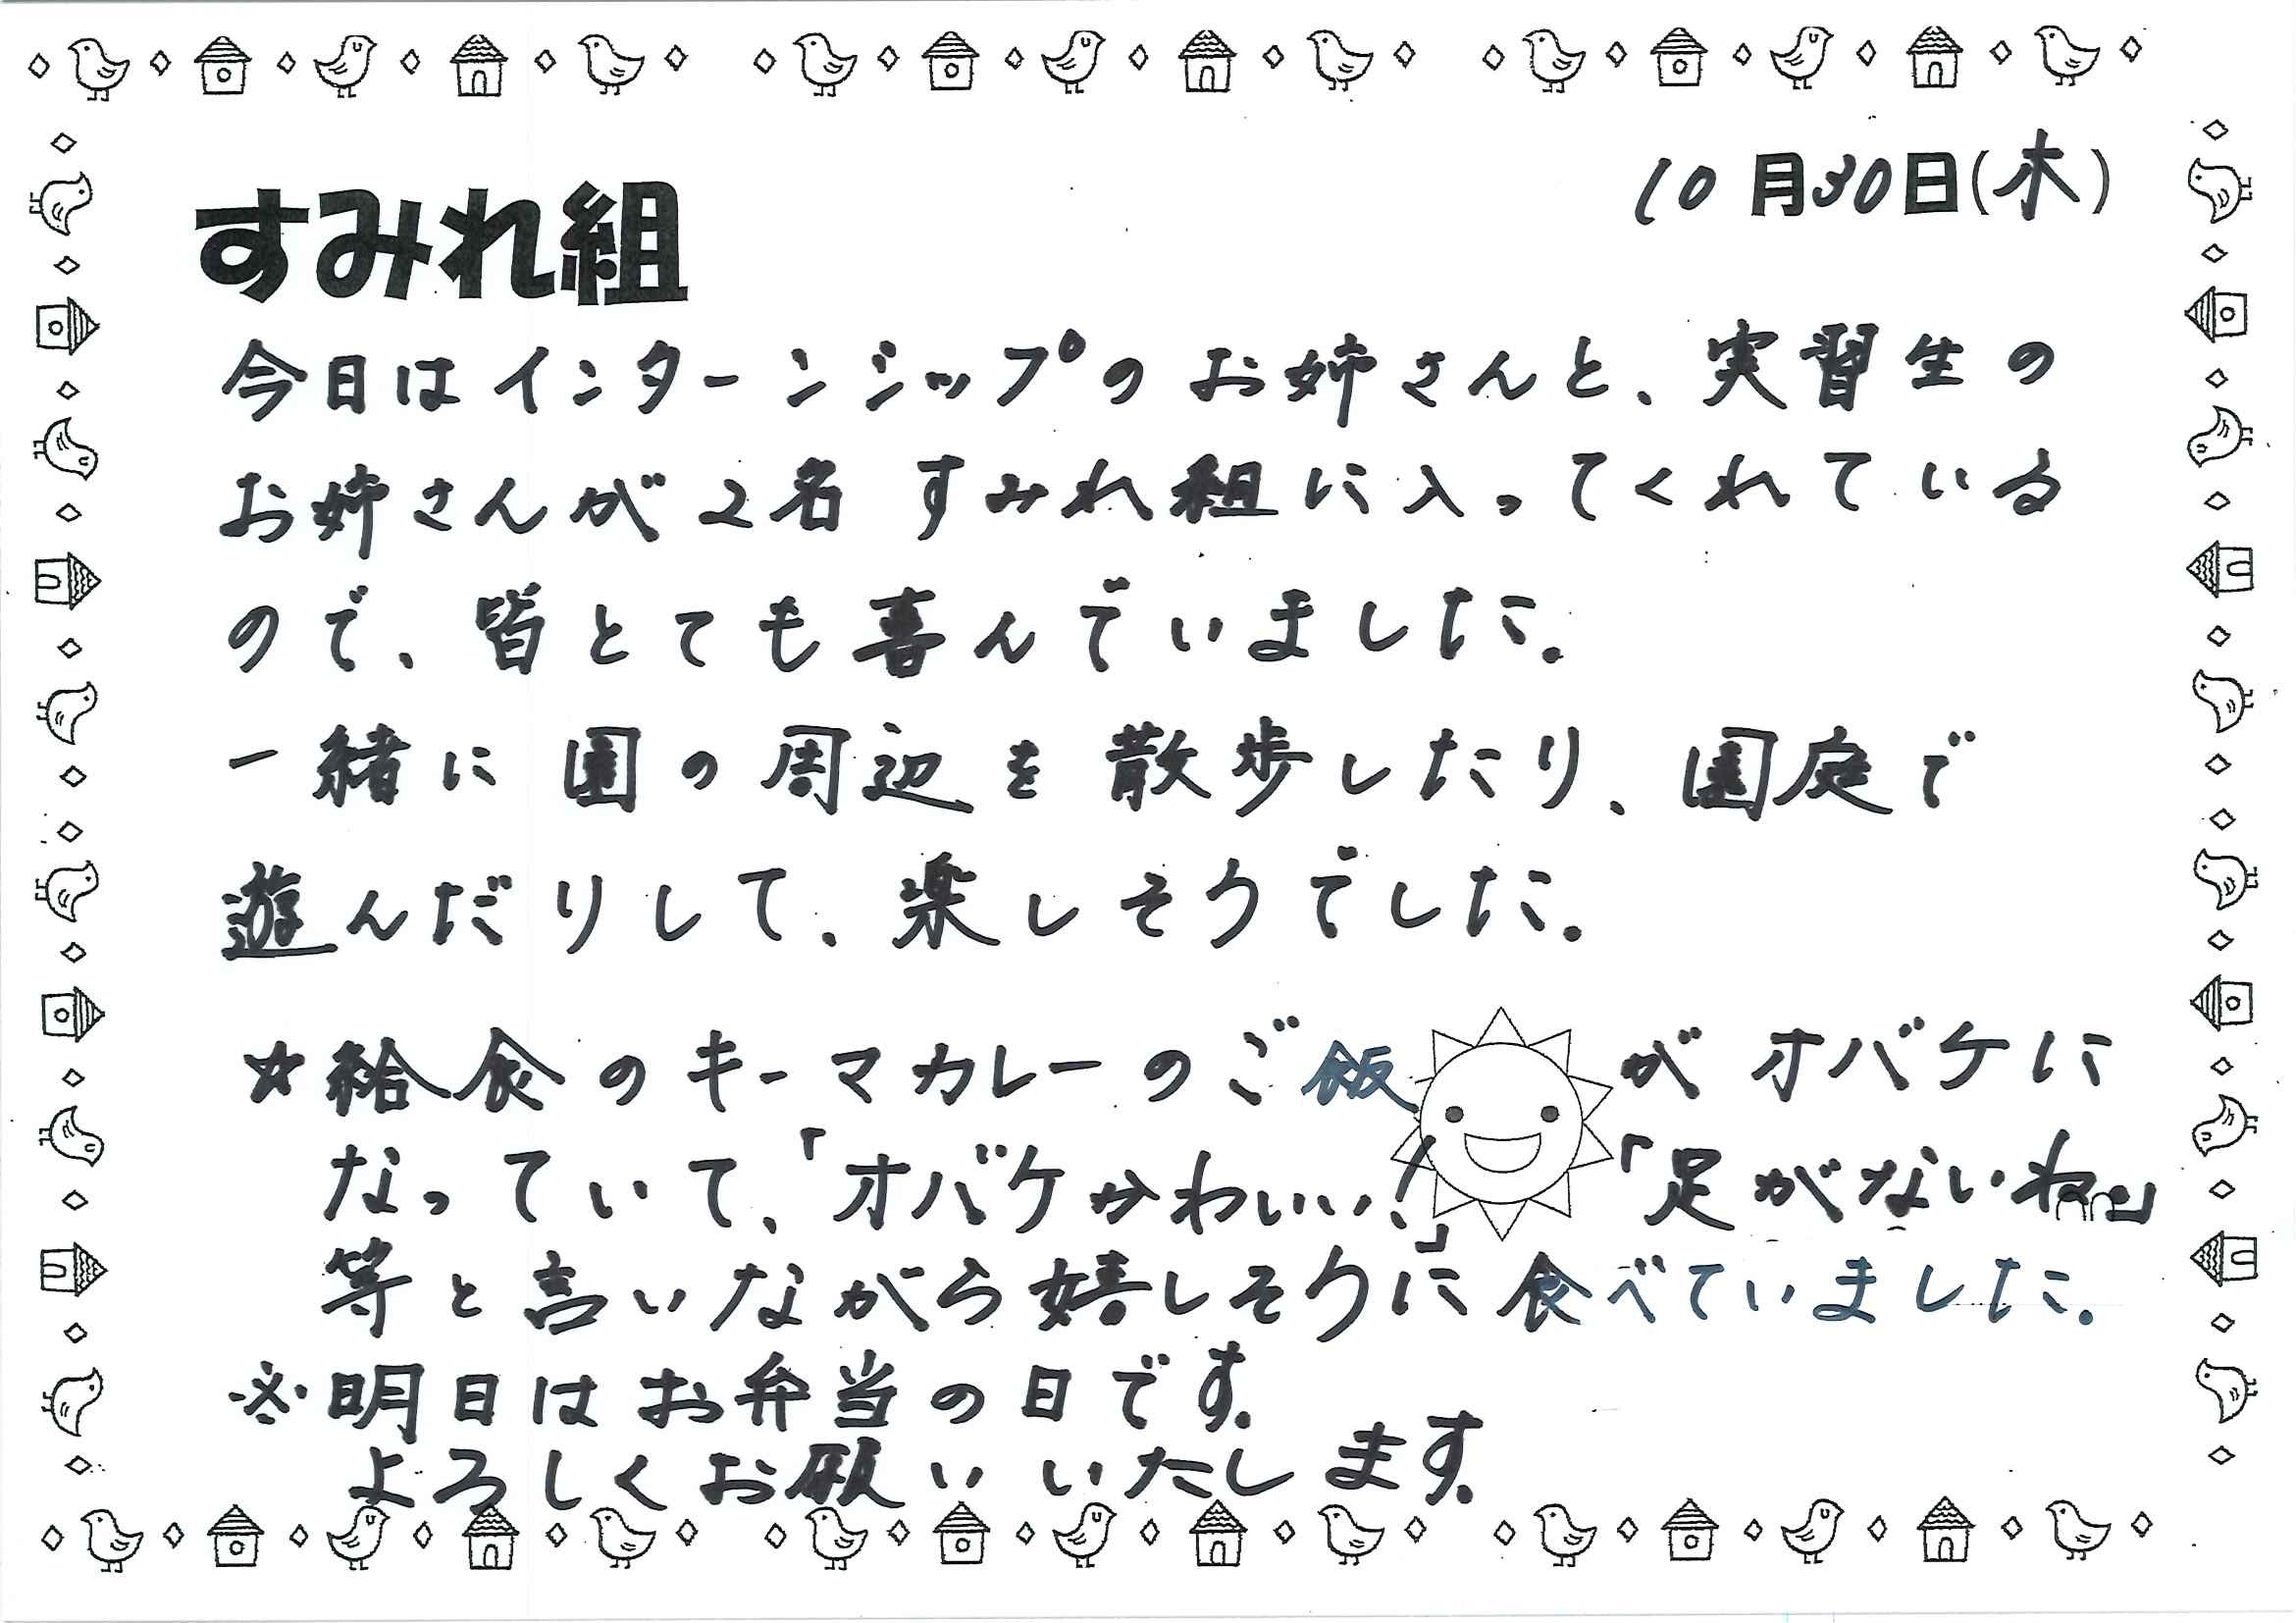 10月30日(木)
すみれ組
今日はインターンシップのお姉さんと、実習生の
お姉さんが2名 すみれ組に入ってくれている
ので、皆とても喜んでいました。
一緒に園の周辺を散歩したり、園庭で
遊んだりして、楽しそうでした。
☆給食のキーマカレーのご飯がオバケに
なっていて、「オバケかわいい!」「足がないね」
等と言いながら嬉しそうに食べていました。
※明日はお弁当の日です。
よろしくお願いいたします。